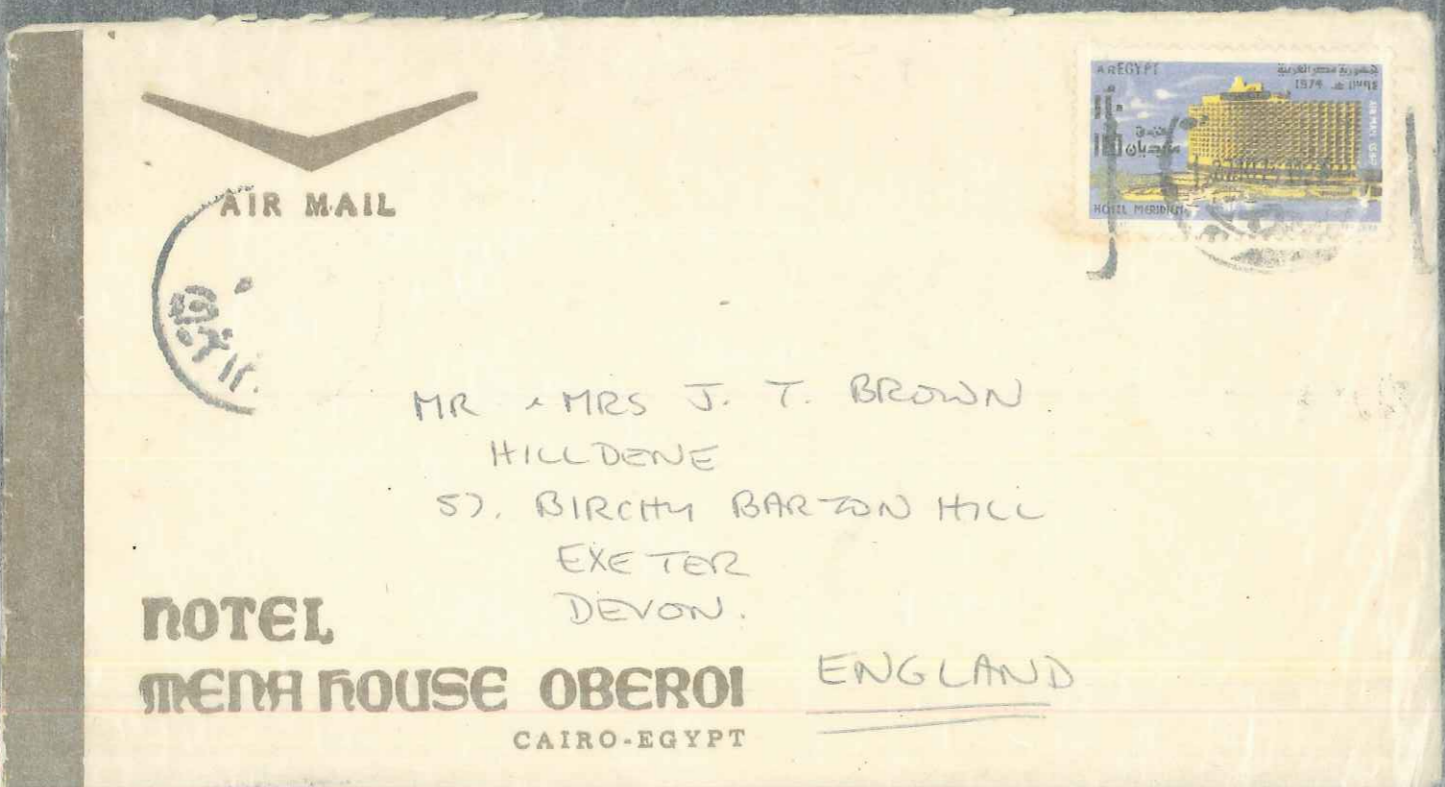 AIR MAIL
A R EGYPT
جمهورية مصر العربية
1974 - ١٣٩٤ هـ
١١٠
110
فندق
مريديان
AIR MAIL
HOTEL MERIDIEN
MR & MRS J. T. BROWN
HILLDENE
57. BIRCHY BARTON HILL
EXETER
DEVON.
ENGLAND
HOTEL
MENA HOUSE OBEROI
CAIRO-EGYPT